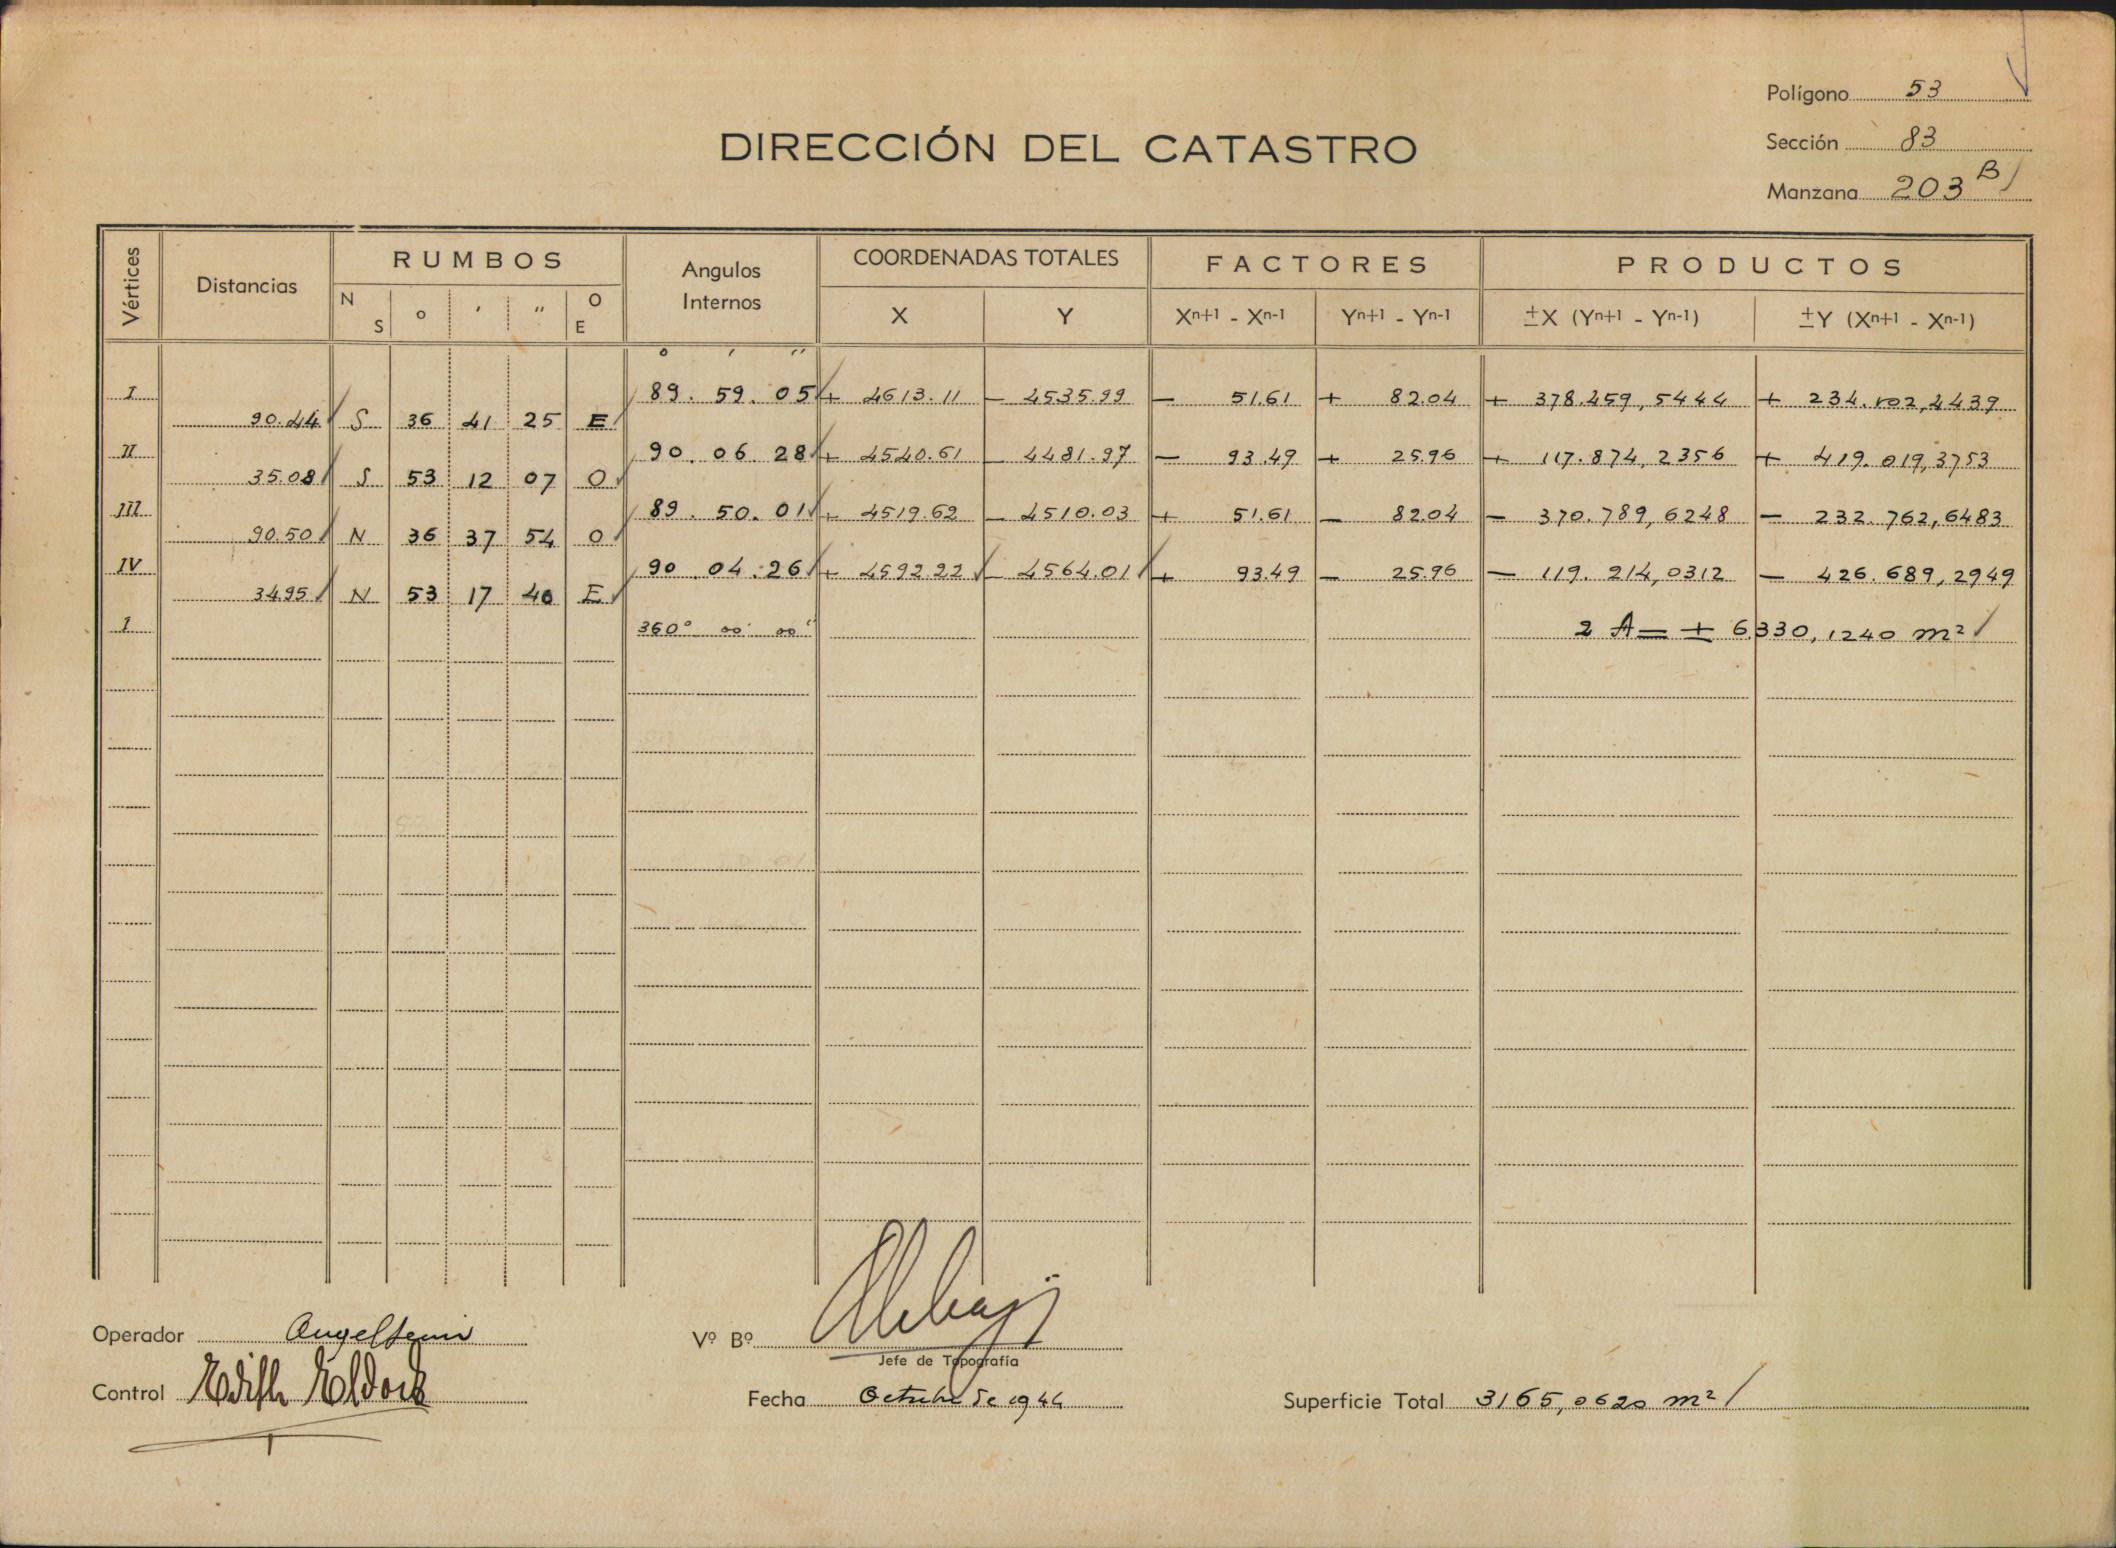 Polígono 53
DIRECCIÓN DEL CATASTRO
Sección 83
Manzana 203 B
Vértices Distancias RUMBOS Angulos Internos COORDENADAS TOTALES FACTORES PRODUCTOS
N S ° ' " O E X Y Xn+1 - Xn-1 Yn+1 - Yn-1 ±X (Yn+1 - Yn-1) ±Y (Xn+1 - Xn-1)
° ' "
I 89. 59. 05 + 4613.11 − 4535.99 − 51.61 + 82.04 + 378.459,5444 + 234.102,4439
90.44 S 36 41 25 E
II 90. 06 28 + 4540.61 − 4481.97 − 93.49 + 25.96 + 117.874,2356 + 419.019,3753
35.08 S 53 12 07 O
III 89. 50. 01 + 4519.62 − 4510.03 + 51.61 − 82.04 − 370.789,6248 − 232.762,6483
90.50 N 36 37 54 O
IV 90 04.26 + 4592.22 − 4564.01 + 93.49 − 25.96 − 119.214,0312 − 426.689,2949
34.95 N 53 17 40 E
I 360° 00' 00" 2 A = + 6.330,1240 m²
Operador Angel
Vº Bº
Jefe de Topografía
Control Edith
Fecha Octubre de 1944
Superficie Total 3165,0620 m²